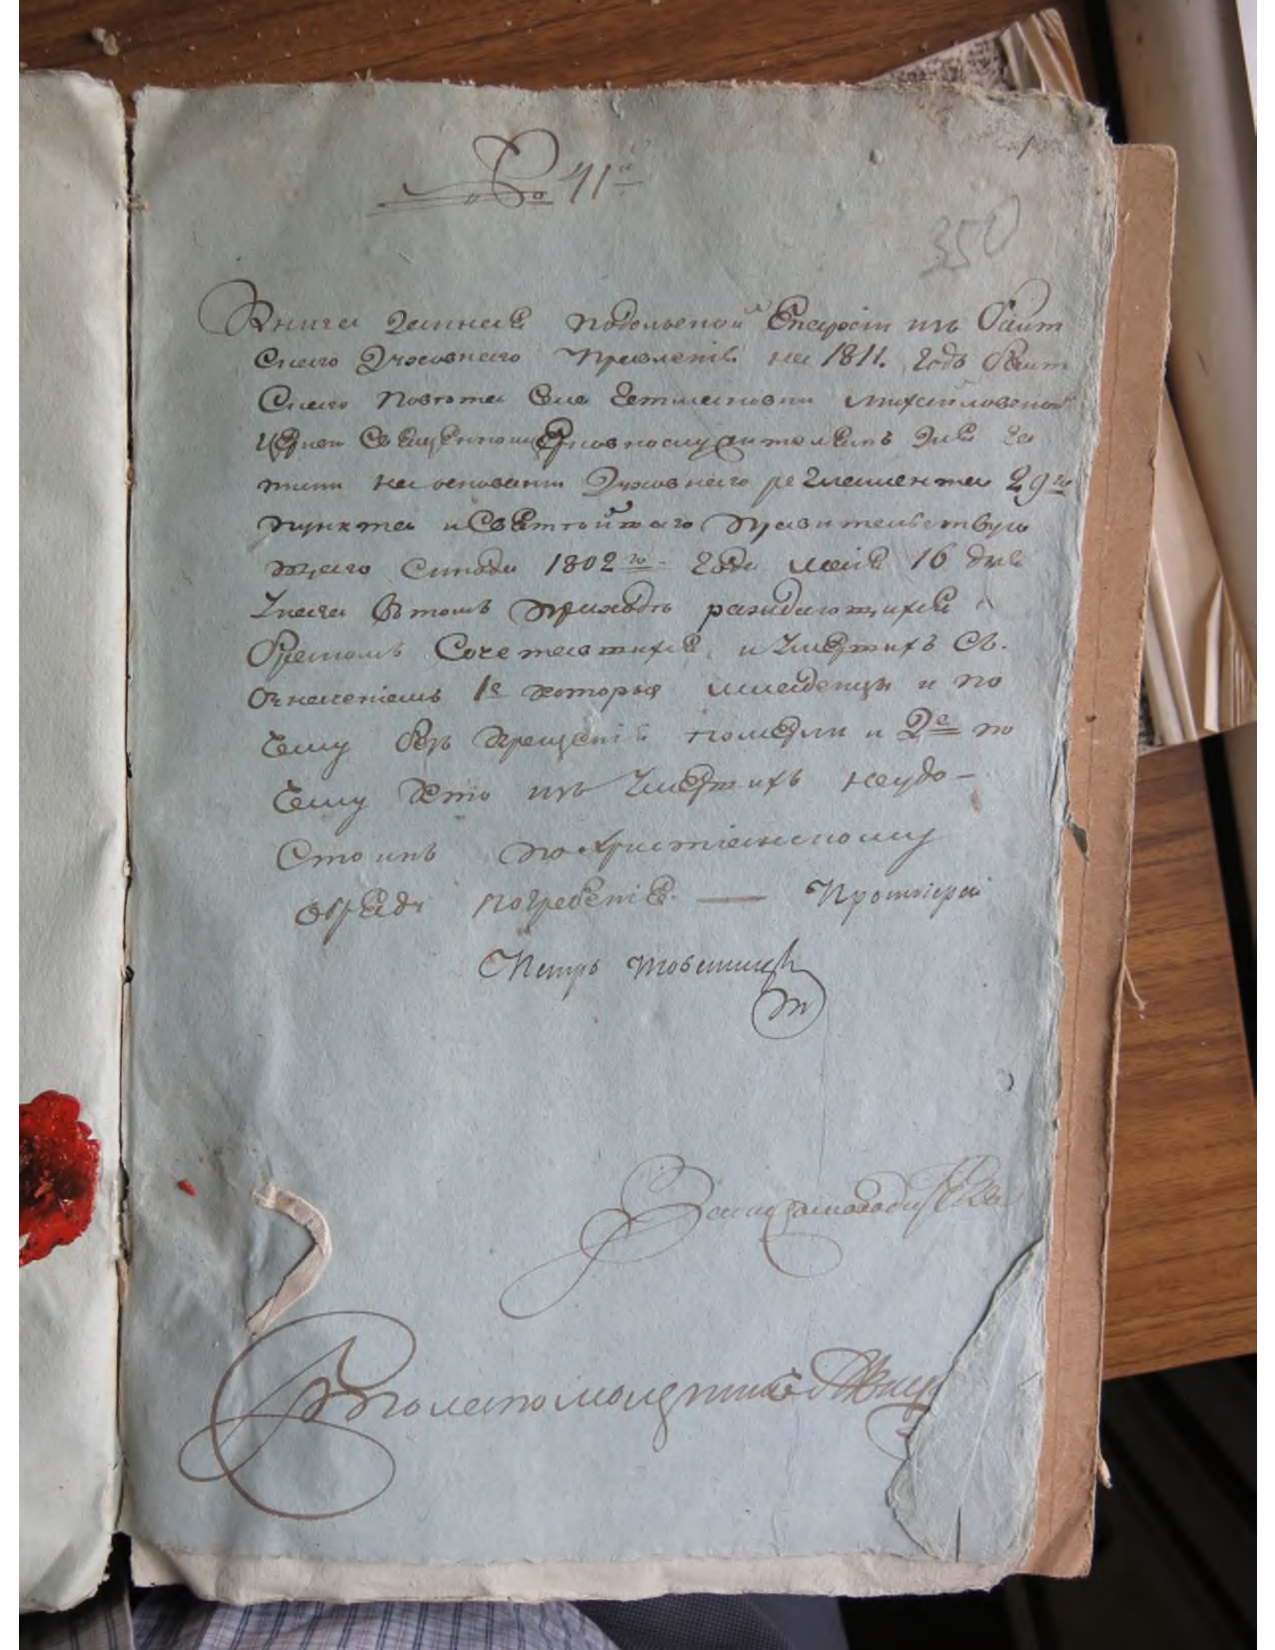 № 41й
1
350
Книга данная Подольской Епархіи изъ Балт
скаго Духовнаго Правленія на 1811. годъ Балт
скаго повѣта села Гетмановки Михайловской
церкви священноцерковнослужителямъ для за
писки на основаніи Духовнаго регламента 29го
пункта и Святѣйшаго Правительствую
щаго Синода 1802го года маія 16 дня
указа въ томъ приходѣ раждающихся
бракомъ сочетавшихся, и умершихъ съ
означеніемъ 1е которыя младенцы и по
чему безъ крещенія померли и 2е по
чему кто изъ умершихъ неудо-
стоинъ по христіанскому
обряду погребенія. — Протоіерей
Петръ